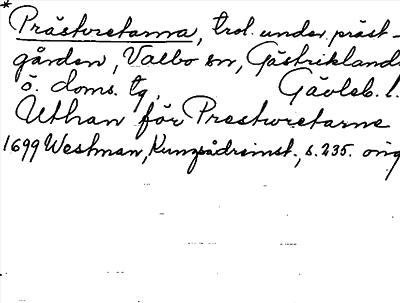 * Prästvretarna, trol. under präst-
gården, Valbo sn, Gästriklands
ö. doms. tg, Gävleb. l.
Uthan för Prestwretarne
1699 Westman, Kungsådreinst., s. 235. orig